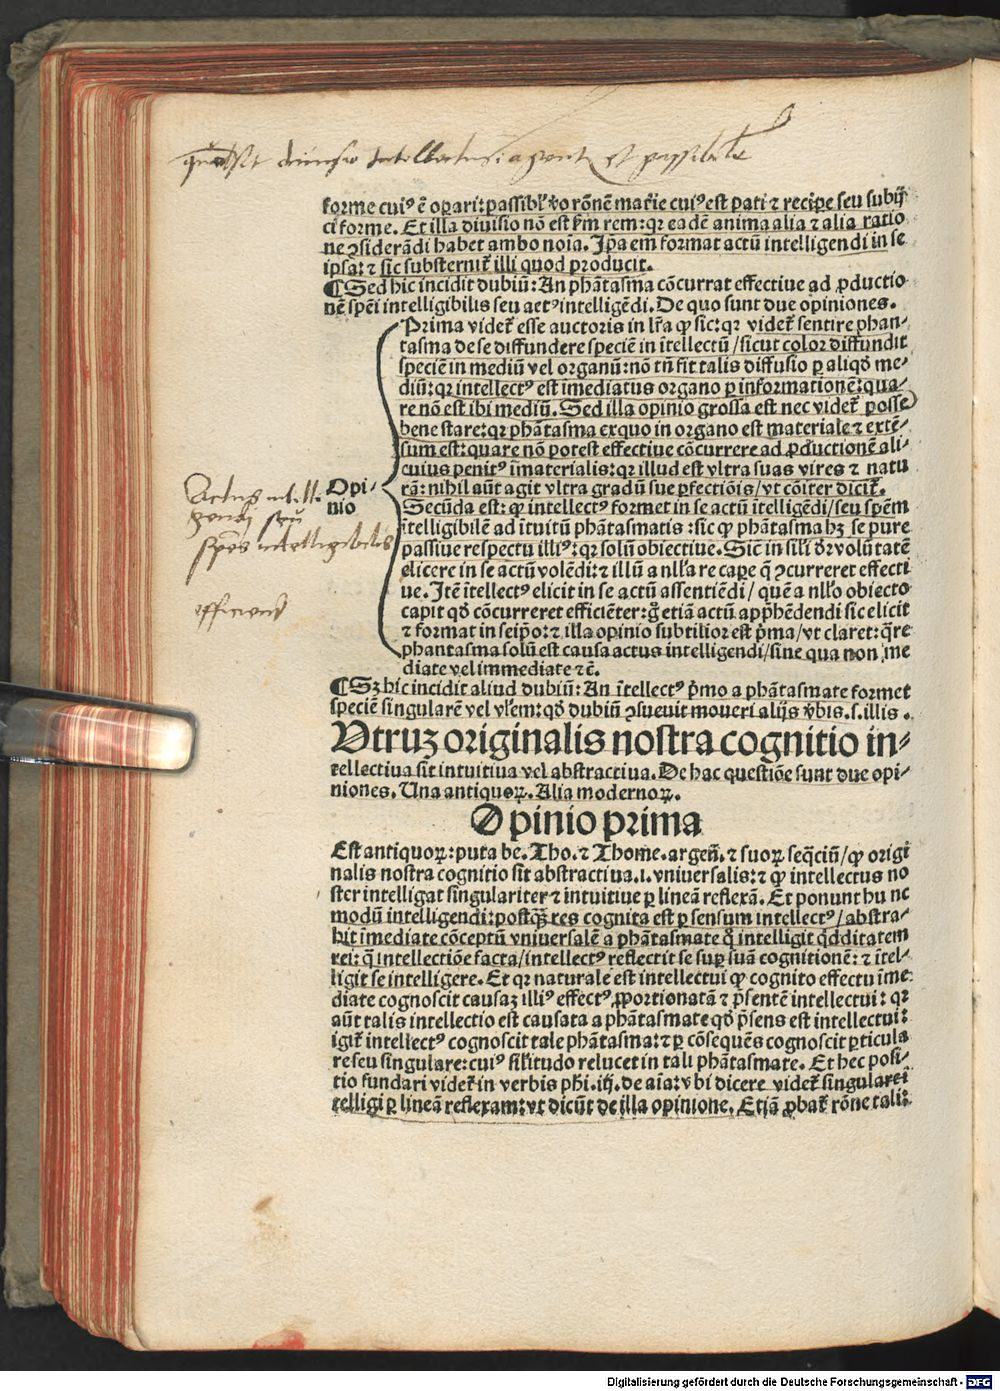 forme cuiꝰ ē oꝑari: passibĺ ꝟo rōnēm mat̃ie cuiꝰ est pati ⁊ reciꝑe seu subij
ci forme. Et illa diuisio nō est ẜm rem: qꝛ eadē anima alia ⁊ alia ratio
ne ꝯsiderādi habet ambo noīa. Jp̄a em̄ format actū intelligendi in se
ipsa: ⁊ sic substernit̃ illi quod producit.
¶ Sed hic incidit dubiū: An phātasma cōcurrat effectiue ad ꝓductio
nē sp̄ei intelligibilis seu actꝰ intelligēdi. De quo sunt due opiniones.
Opi-
nio
Prima videt̃ esse auctoris in lr̃a ꝙ sic: qꝛ videt̃ sentire phan-
tasma de se diffundere speciē in ītellectū / sicut color diffundit
speciē in mediū vel organū: nō tñ fit talis diffusio ꝑ aliqđ me-
diū: qꝛ intellectꝰ est īmediatus organo ꝑ informationē: qua-
re nō est ibi mediū. Sed illa opinio grossa est nec videt̃ posse
bene stare: qꝛ phātasma ex quo in organo est materiale ⁊ extē-
sum est: quare nō potest effectiue cōcurrere ad ꝓductionē ali-
cuius penitꝰ īmaterialis: qꝛ illud est vltra suas vires ⁊ natu
rā: nihil aūt agit vltra gradū sue ꝑfectiōis / vt cōiter dicit̃.
Secūda est: ꝙ intellectꝰ formet in se actū ītelligēdi / seu spēm
ītelligibilē ad ītuitū phātasmatis: sic ꝙ phātasma hꝫ se pure
passiue respectu illiꝰ: qꝛ solū obiectiue. Sicut̄ in sili đr volūtatē
elicere in se actū volēdi: ⁊ illū a nll̃a re caꝑe q̄ ꝯcurreret effecti
ue. Jtē ītellectꝰ elicit in se actū assentiēdi / quē a nll̃o obiecto
capit qđ cōcurreret efficiēter: g̊ etiā actū app̃hēdendi sic elicit
⁊ format in seip̄o: ⁊ illa opinio subtilior est p̃ma / vt claret: q̃re
phantasma solū est causa actus intelligendi / sine qua non me
diate vel immediate ⁊c̄.
¶ Sꝫ hic incidit aliud dubiū: An ītellectꝰ p̃mo a phātasmate formet
speciē singularē vel vl̃em: qđ dubiū ꝯsueuit moueri alijs ꝟbis .s. illis.
Vtruꝫ originalis nostra cognitio in-
tellectiua sit intuitiua vel abstractiua. De hac questiōe sunt due opi-
niones. Una antiquoꝝ. Alia modernoꝝ.
Opinio prima
Est antiquoꝝ: puta be. Tho. ⁊ Thome. argeñ. ⁊ suoꝝ seq̄ciū / ꝙ origi
nalis nostra cognitio sit abstractiua .i. vniuersalis: ⁊ ꝙ intellectus no
ster intelligat singulariter ⁊ intuitiue ꝑ lineā reflexā. Et ponunt hunc
modū intelligendi: postq̄ꝫ res cognita est ꝑ sensum intellectꝰ / abstra-
hit īmediate cōceptū vniuersalē a phātasmate q̊ intelligit qđditatem
rei: q̄ intellectiōe facta / intellectꝰ reflectit se suꝑ suā cognitionē: ⁊ ītel-
ligit se intelligere. Et qꝛ naturale est intellectui ꝙ cognito effectu īme
diate cognoscit causaꝫ illiꝰ effectꝰ, ꝓportionatā ⁊ p̃sentē intellectui: qꝛ
aūt talis intellectio est causata a phātasmate qđ p̃sens est intellectui:
igit̃ intellectꝰ cognoscit tale phātasma: ⁊ ꝑ cōsequēs cognoscit ꝑticula
re seu singulare: cuiꝰ sil̃itudo relucet in tali phātasmate. Et hec posi-
tio fundari videt̃ in verbis phĩ. iij. de aīa: vbi dicere videt̃ singulare ī
telligi ꝑ lineā reflexam: vt dicūt de illa opinione. Etiā ꝓbat̃ rōne tali:
Actus intell-
seu
spēs intelligibilis
efficiens
Digitalisierung gefördert durch die Deutsche Forschungsgemeinschaft - DFG